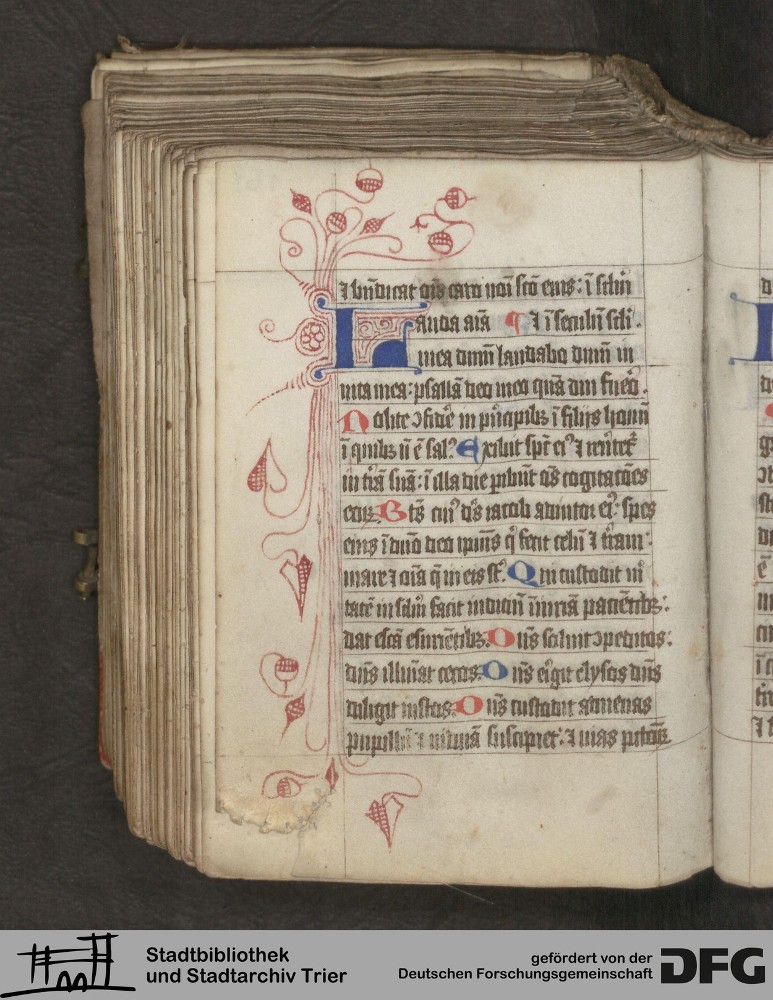 ⁊ bn̄dicat om̄s caro noī sc̄o eius: ī sclm̄
Lauda aīa ¶ ⁊ ī seculū scli .
mea dnm̄ laudabo dnm̄ in
uita mea: psallā deo meo quā diu fuero .
Nolite ɔfidē in pͥncipibꝫ ī filijs homū
ī quibꝫ nō ē salꝰ Exibit sp̄c eiꝰ ⁊ reuertet᷑
in t̄rā suā: ī illa die ꝑibūt om̄s cogitatōes
eoꝝ. Bt̄s cuiꝰ ds̄ iacob adiutor eiꝰ: spes
eius ī dn̄o deo ipius qͥ fecit celū ⁊ t̄ram:
mare ⁊ oīa q̄ in eis st̄. Qui custodit ui
tatē in sclm̄ facit iudiciū iniuriā pacientibꝫ:
dat escā esuriētibꝫ. Dn̄s soluit ɔpeditos:
dn̄s illuīat cecos. Dn̄s erigit elysos dn̄s
diligit iustos. Dn̄s custodit aduenas
pupillū ⁊ uiduā suscipiet: ⁊ uias pctōꝝ
Stadtbibliothek
und Stadtarchiv Trier
gefördert von der
Deutschen Forschungsgemeinschaft
DFG